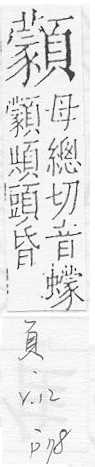 顭
母總切音蠓
顭頭昏
頁
v.12
p.78